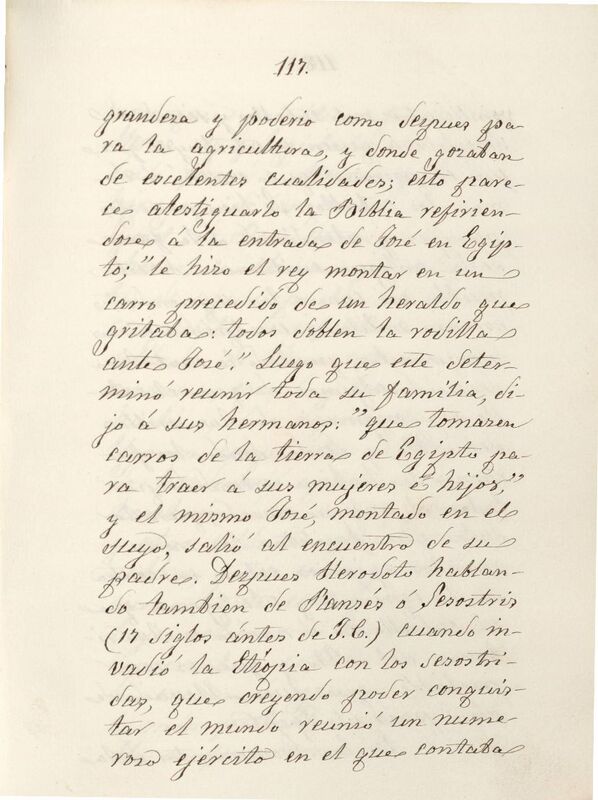 117.
grandeza y poderio como dezpues pa-
ra la agricultura, y donde gozaban
de escelentes cualidades; esto pare-
ce atestiguarlo la Biblia refirien-
dose á la entrada de José en Egip-
to; "le hizo el rey montar en un
carro precedido de un heraldo que
gritaba: todos doblen la rodilla
ante José." Luego que este deter-
minó reunir toda su familia, di-
jo á sus hermanos: "que tomasen
carros de la tierra de Egipto pa-
ra traer á sus mujeres é hijos,"
y el mismo José, montado en el
suyo, salió al encuentro de su
padre. Dezpues Herodoto hablan-
do tambien de Ransés ó Sesostris
(17 siglos ántes de J.C.) cuando in-
vadió la Etiópia con los sesostri-
das, que creyendo poder conquis-
tar el mundo reunió un nume
roso ejército en el que contaba